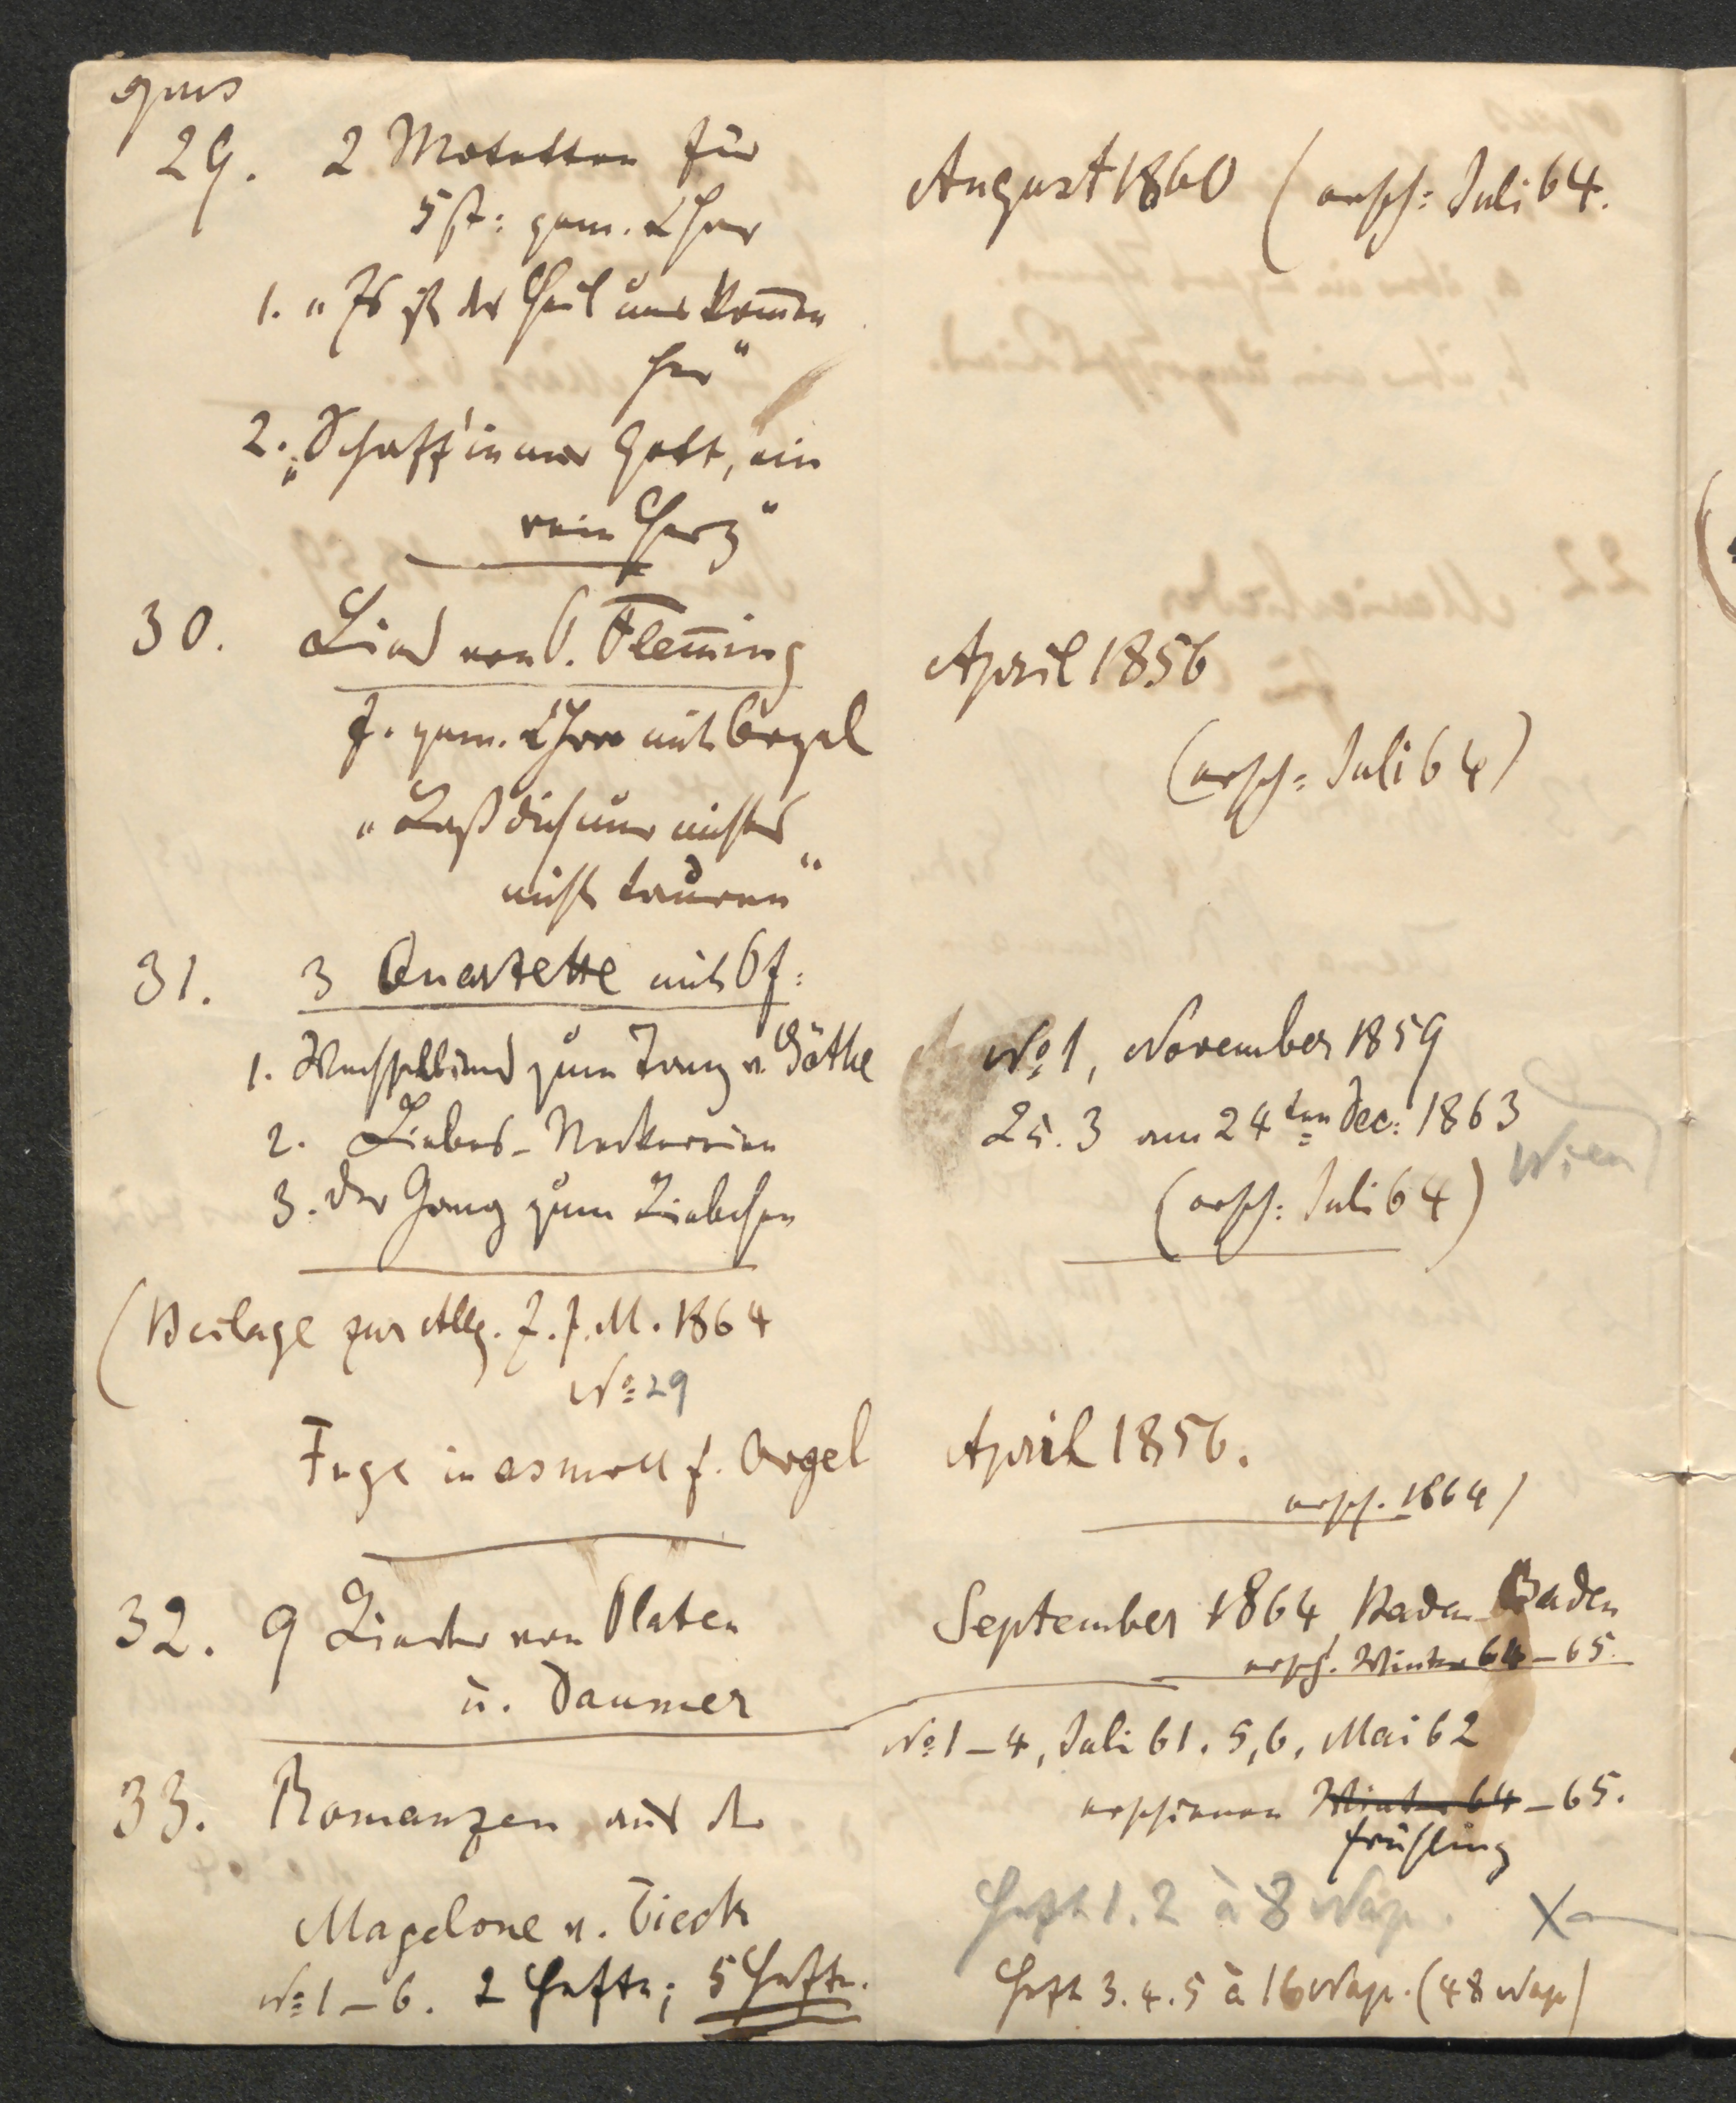 opus
29. 2 Motetten für
5 st: gem. Chor
August 1860 (ersch: Juli 64.
1. „Es ist das Heil uns kom̄en
her“
2. „Schaff' in mir Gott, ein
rein Herz“
30. Lied von P. Flem̄ing
April 1856
f. gem. Chor mit Orgel
(ersch: Juli 64)
„Laß dich nur nichts
nicht dauren“
31. 3 Quartette mit Pf:
1. Wechsellied zum Tanz v. Göthe
No 1, November 1859
2. Liebes-Neckereien
2 u. 3 am 24ten Dec: 1863
Wien
3. Der Gang zum Liebchen
(ersch: Juli 64)
(Beilage zur Allg. Z. f. M. 1864
No 29
Fuge in as moll f. Orgel
April 1856.
ersch. 1864)
32. 9 Lieder von Platen
u. Daumer
September 1864 Baden Baden
ersch. Winter 64–65.
No 1–4, Juli 61. 5, 6, Mai 62
33. Romanzen aus der
erschienen Winter 64–65.
Frühling
Magelone v. Tieck
Heft 1. 2 à 8 Nap. X
No 1–6. 2 Hefte; 5 Hefte.
Heft 3. 4. 5 à 16 Nap. (48 Nap)